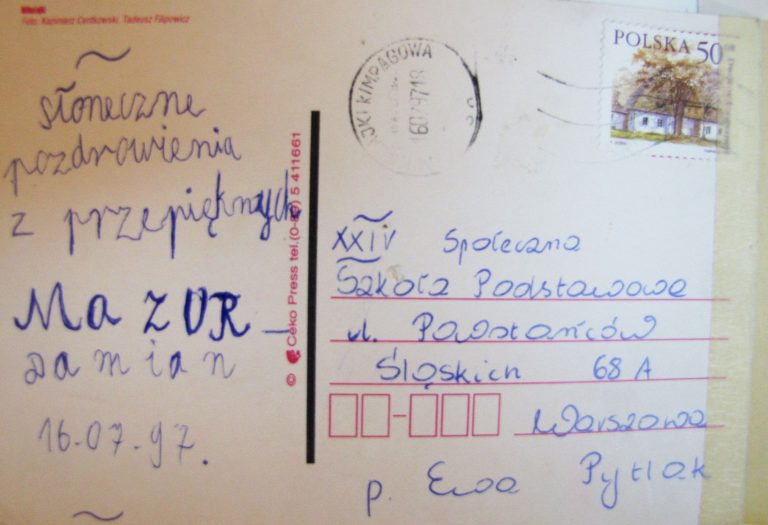 Mikołajki
Foto: Kazimierz Centkowski, Tadeusz Filipowicz
słoneczne
pozdrowienia
z przepięknych
MaZUR
Damian
16.07.97.
© Ceko Press tel. (0-89) 5 411661
JKI KIMPAGOWA
16079718
POLSKA 50
XXIV Społeczna
Szkoła Podstawowa
ul. Powstańców
Śląskich 68 A
Warszawa
p. Ewa Pytlak